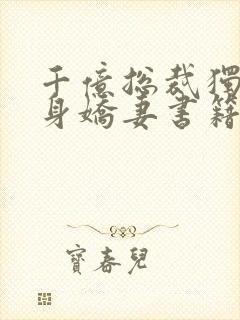 千億总裁獨
身嬌妻書籍
寶春兒